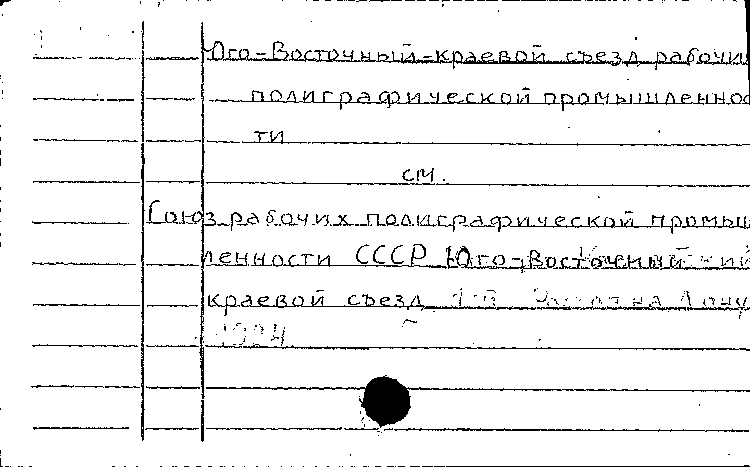 Юго-Восточный-краевой съезд рабочи
полиграфической промышленнос
ти
см.
Союз рабочих полиграфической промыш
ленности СССР Юго-Восточный
краевой съезд 1-й на Дону
1924